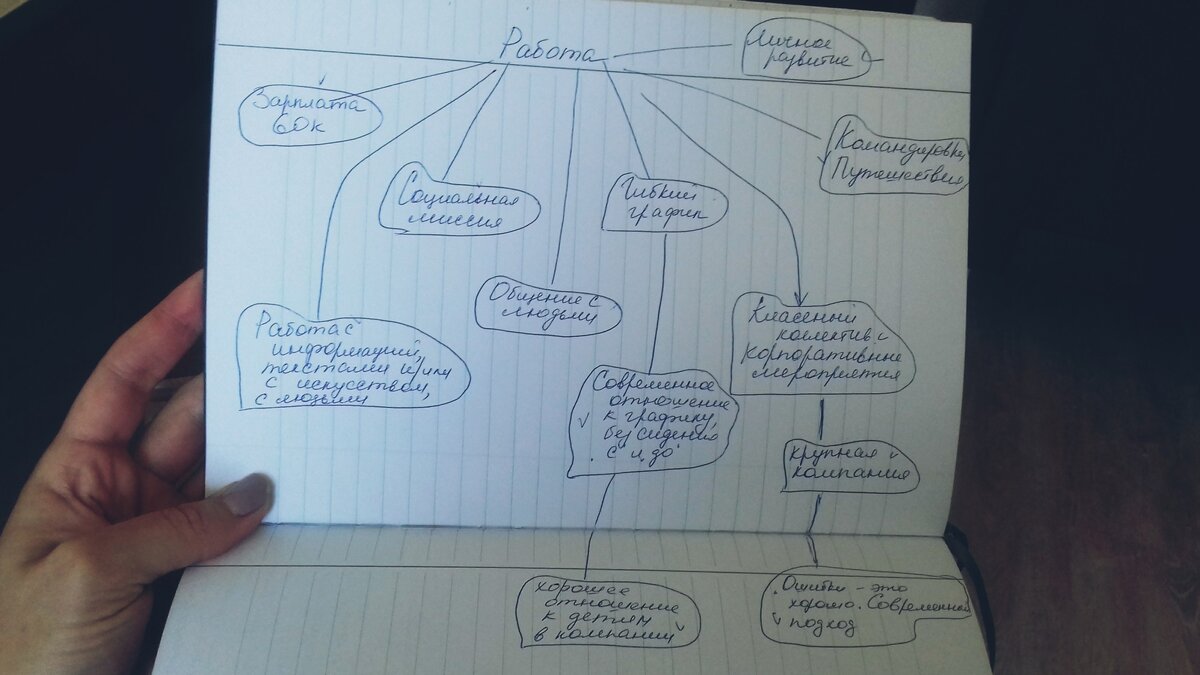 Работа
Личное
развитие
Зарплата
60к
Командировки,
Путешествия
Социальная
миссия
Гибкий
график
Общение с
людьми
Работа с
информацией,
текстами и/или
с искусством,
с людьми
Классный
коллектив и
корпоративные
мероприятия
Современное
отношение
к графику,
без сидения
с и до
крупная
компания
хорошее
отношение
к детям
в компании
Ошибки - это
хорошо. Современный
подход